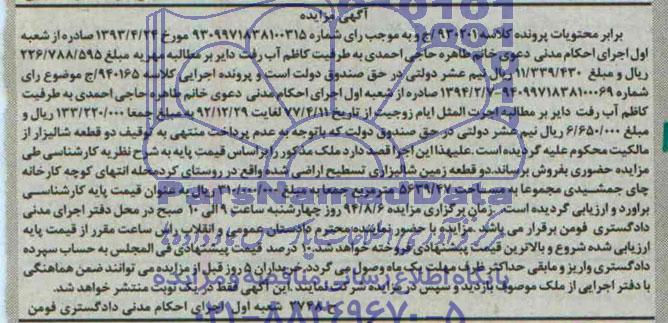 آگهی مزایده
برابر محتویات پرونده کلاسه ۹۳۰۲۰۱/ج و به موجب رای شماره ۹۳۰۹۹۷۱۸۳۸۱۰۰۳۱۵ مورخ ۱۳۹۳/۴/۲۴ صادره از شعبه
اول اجرای احکام مدنی دعوی خانم طاهره حاجی احمدی به طرفیت کاظم آب رفت دایر بر مطالبه مهریه مبلغ ۲۲۶/۷۸۸/۵۹۵
ریال و مبلغ ۱۱/۳۳۹/۴۳۰ ریال نیم عشر دولتی در حق صندوق دولت است و پرونده اجرایی کلاسه ۹۴۰۱۶۵/ج موضوع رای
شماره ۹۴۰۹۹۷۱۸۳۸۱۰۰۰۶۹-۱۳۹۴/۲/۷ صادره از شعبه اول اجرای احکام مدنی دعوی خانم طاهره حاجی احمدی به طرفیت
کاظم آب رفت دایر بر مطالبه اجرت المثل ایام زوجیت از تاریخ ۷۷/۴/۱۱ لغایت ۹۲/۱۲/۲۹ به مبلغ جمعا ۱۳۳/۲۲۰/۰۰۰ ریال و
مبلغ ۶/۶۵۰/۰۰۰ ریال نیم عشر دولتی در حق صندوق دولت که باتوجه به عدم پرداخت منتهی به توقیف دو قطعه شالیزار از
مالکیت محکوم علیه گردیده است. علیهذا این اجرا قصد دارد ملک مذکور را بر اساس قیمت پایه به شرح نظریه کارشناسی طی
مزایده حضوری بفروش برساند. دو قطعه زمین شالیزاری تسطیح اراضی شده واقع در روستای کردمحله انتهای کوچه کارخانه
چای جمشیدی مجموعا به مساحت ۵۶۳۹/۴۷ مترمربع جمعا به مبلغ ۳۱۰/۰۰۰/۰۰۰ ریال به عنوان قیمت پایه کارشناسی
براورد و ارزیابی گردیده است. زمان برگزاری مزایده ۹۴/۸/۶ روز چهارشنبه ساعت ۹ الی ۱۰ صبح در محل دفتر اجرای مدنی
دادگستری فومن برقرار می باشد. مزایده با حضور نماینده محترم دادستان عمومی و انقلاب راس ساعت مقرر از قیمت پایه
ارزیابی شده شروع و بالاترین قیمت پیشنهادی فروخته خواهد شد. ۱۰ درصد قیمت پیشنهادی فی المجلس به حساب سپرده
دادگستری واریز و مابقی حداکثر ظرف مدت یک ماه وصول می گردد. خریداران ۵ روز قبل از مزایده می توانند ضمن هماهنگی
با دفتر اجرایی از ملک موصوف بازدید و سپس در مزایده شرکت نمایند. این آگهی فقط در یک نوبت منتشر خواهد شد.
ح ۳۷۴۸ شعبه اول اجرای احکام مدنی دادگستری فومن
ParsNamadData
پایگاه اطلاع رسانی مناقصه و مزایده
۰۲۱-۸۸۳۴۹۶۷۰-۵